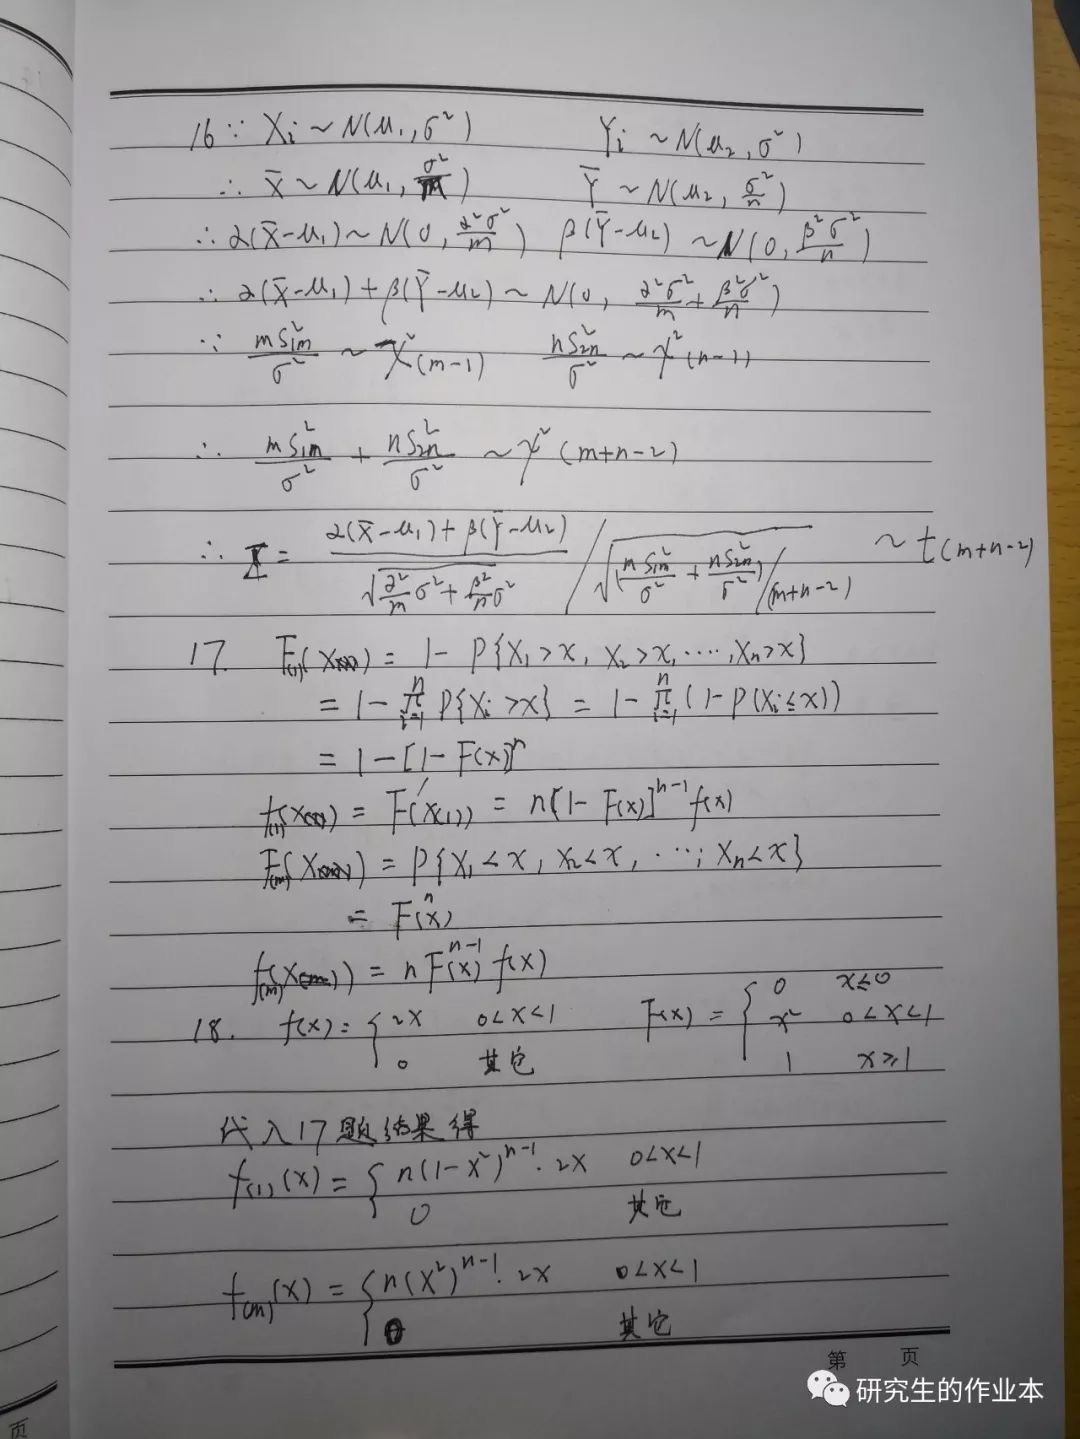 16 ∵ Xi ~ N(μ₁, σ²)  Yi ~ N(μ₂, σ²)
∴ X̄ ~ N(μ₁, σ²/m)  Ȳ ~ N(μ₂, σ²/n)
∴ α(X̄-μ₁) ~ N(0, α²σ²/m)  β(Ȳ-μ₂) ~ N(0, β²σ²/n)
∴ α(X̄-μ₁) + β(Ȳ-μ₂) ~ N(0, α²σ²/m + β²σ²/n)
∵ mS₁m²/σ² ~ χ²(m-1)  nS₂n²/σ² ~ χ²(n-1)
∴ mS₁m²/σ² + nS₂n²/σ² ~ χ²(m+n-2)
∴ = (α(X̄-μ₁) + β(Ȳ-μ₂))/√(α²/m σ² + β²/n σ²) / √((mS₁m²/σ² + nS₂n²/σ²)/(m+n-2)) ~ t(m+n-2)
17. F(1)(x) = 1 - P{X₁>x, X₂>x, ···, Xn>x}
= 1 - ∏ⁿᵢ₌₁ P{Xi>x} = 1 - ∏ⁿᵢ₌₁ (1-P(Xi≤x))
= 1 - [1-F(x)]ⁿ
f(1)(x) = F'(x(1)) = n[1-F(x)]ⁿ⁻¹ f(x)
F(m)(x) = P{X₁<x, X₂<x, ···, Xn<x}
= Fⁿ(x)
f(m)(x) = nFⁿ⁻¹(x) f(x)
18. f(x) = { 2x  0<x<1  F(x) = { 0  x≤0
0  其它  x²  0<x<1
1  x≥1
代入17题结果得
f(1)(x) = { n(1-x²)ⁿ⁻¹·2x  0<x<1
0  其它
f(m)(x) = { n(x²)ⁿ⁻¹·2x  0<x<1
0  其它
第  页
研究生的作业本
页